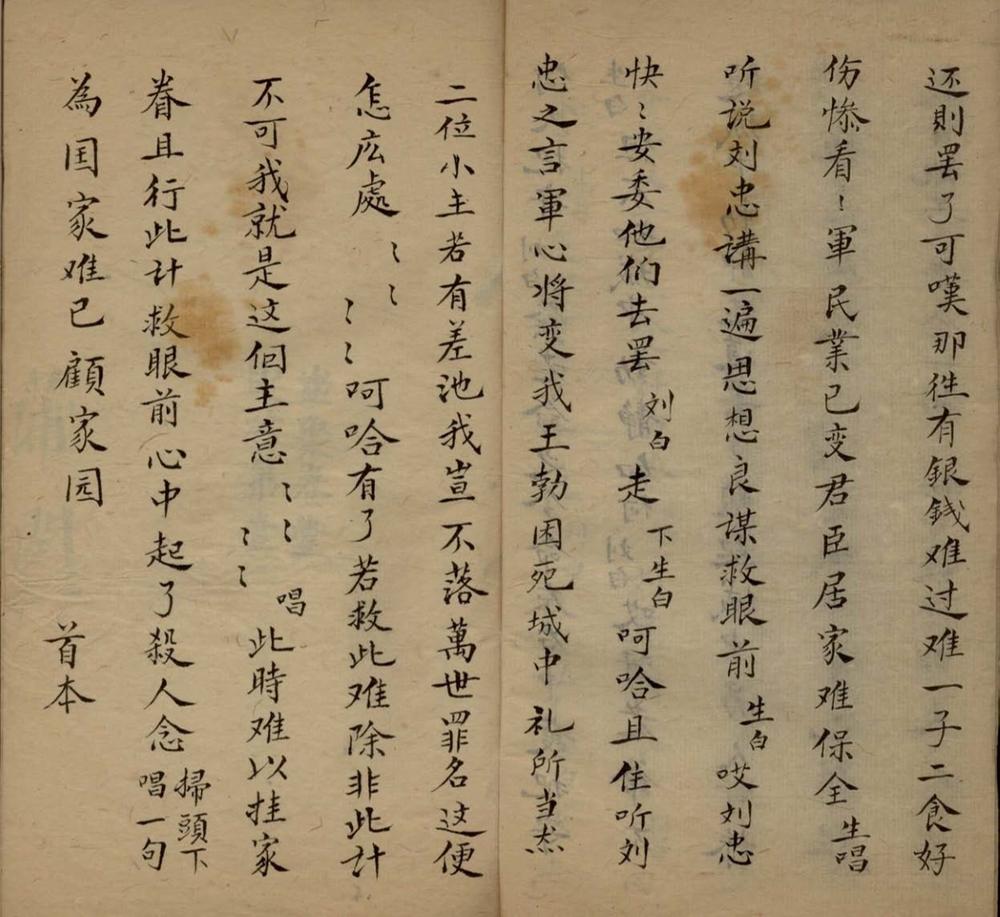 还則罢了可嘆那徃有銀銭难过难一子二食好
伤惨看〻軍民業已变君臣居家难保全生唱
听说刘忠講一遍思想良谋救眼前生白哎刘忠
快〻安委他们去罢刘白走下生白呵哈且住听刘
忠之言軍心将变我王勃困死城中礼所当然
二位小主若有差池我豈不落萬世罪名这便
怎庅處〻〻〻〻呵哈有了若救此难除非此计
不可我就是这個主意〻〻〻〻唱此時难以挂家
眷且行此计救眼前心中起了殺人念唱一句掃頭下
為国家难已顧家园
首本